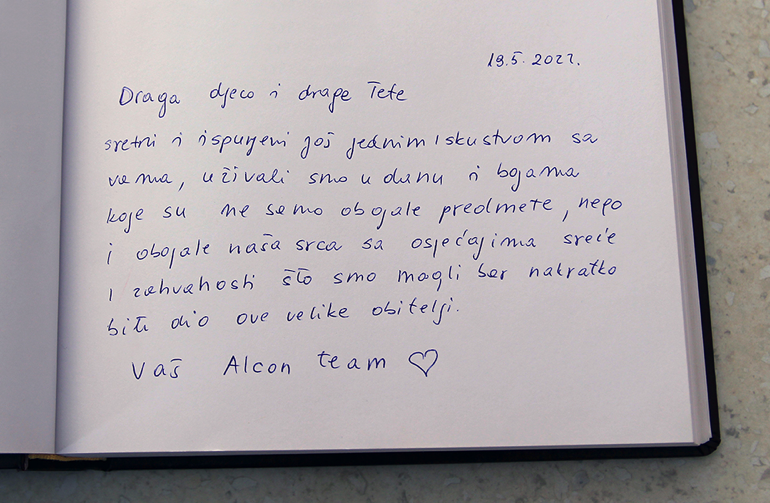 19.5.2022.
Draga djeco i drage Tete
sretni i ispunjeni još jednim iskustvom sa
vama, uživali smo u danu i bojama
koje su ne samo obojale predmete, nego
i obojale naša srca sa osjećajima sreće
i zahvalnosti što smo mogli bar nakratko
biti dio ove velike obitelji.
Vaš Alcon team ♡